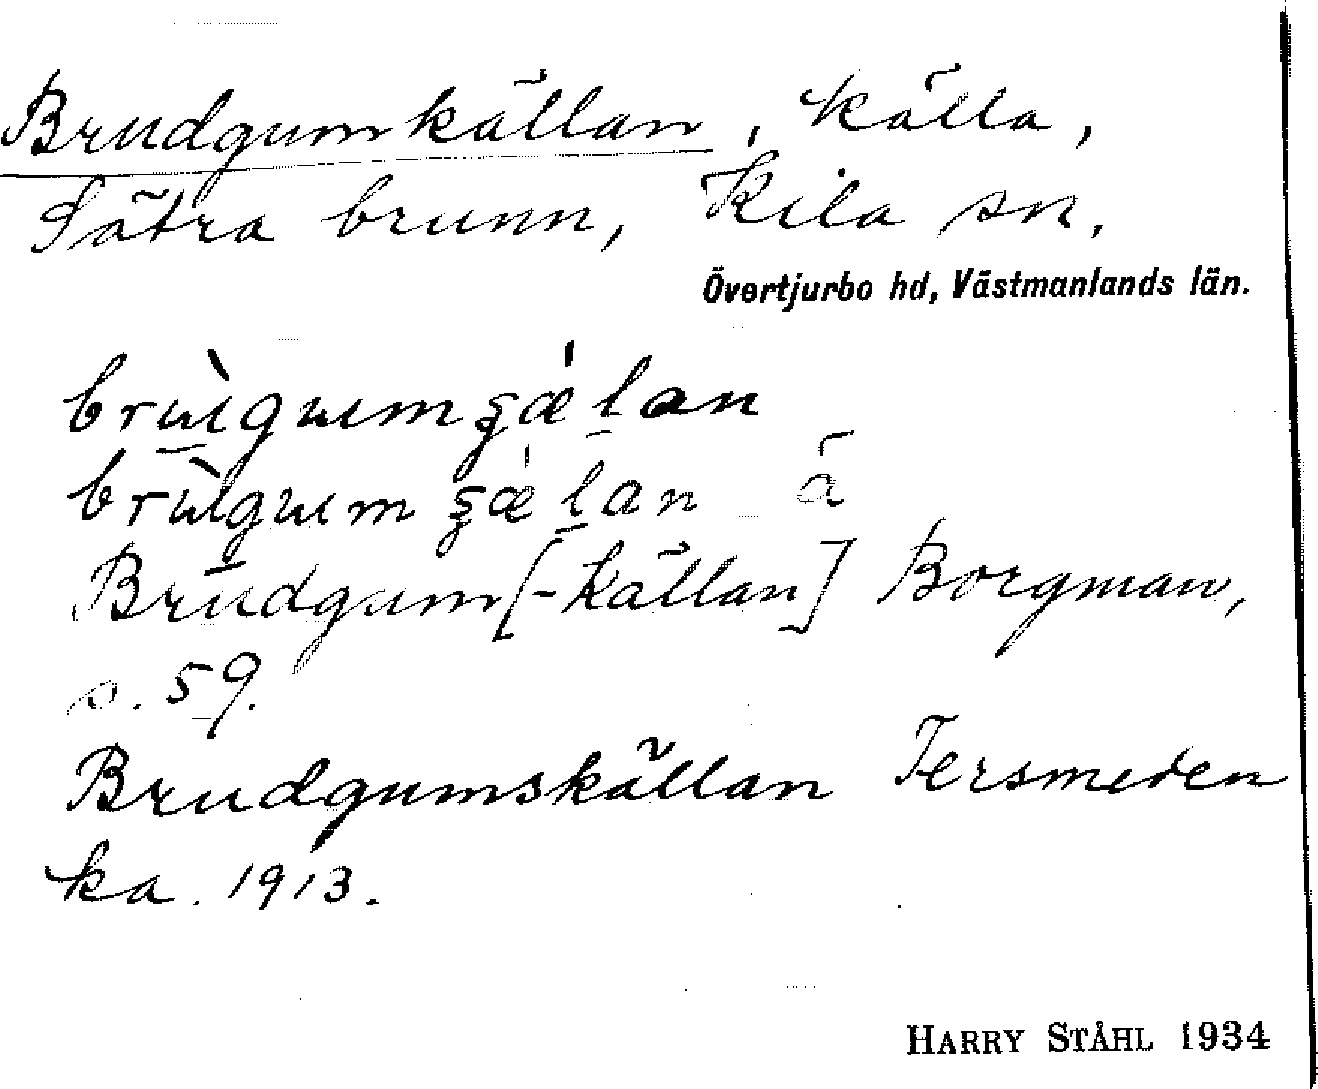 Brudgumkällan, källa,
Sätra brunn, Kila sn,
Övertjurbo hd, Västmanlands län.
Brudgum[-källan] Borgman,
s. 59.
Brudgumskällan Tersmeden
ka. 1913.
HARRY STÅHL 1934